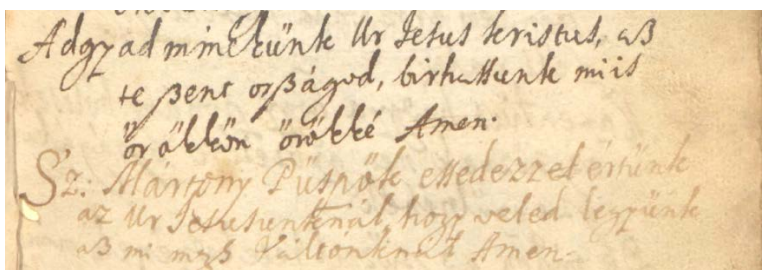 Adgyad minekünk Ur Jesus kristus, aß
te ßent orßágod, birhassunk mi is
örökkön örökké Amen.
Sz: Mártony Püspök essedezzel értünk
az Ur Jesusunknál hogy veled legyünk
aß mi Váltónknál Amen.